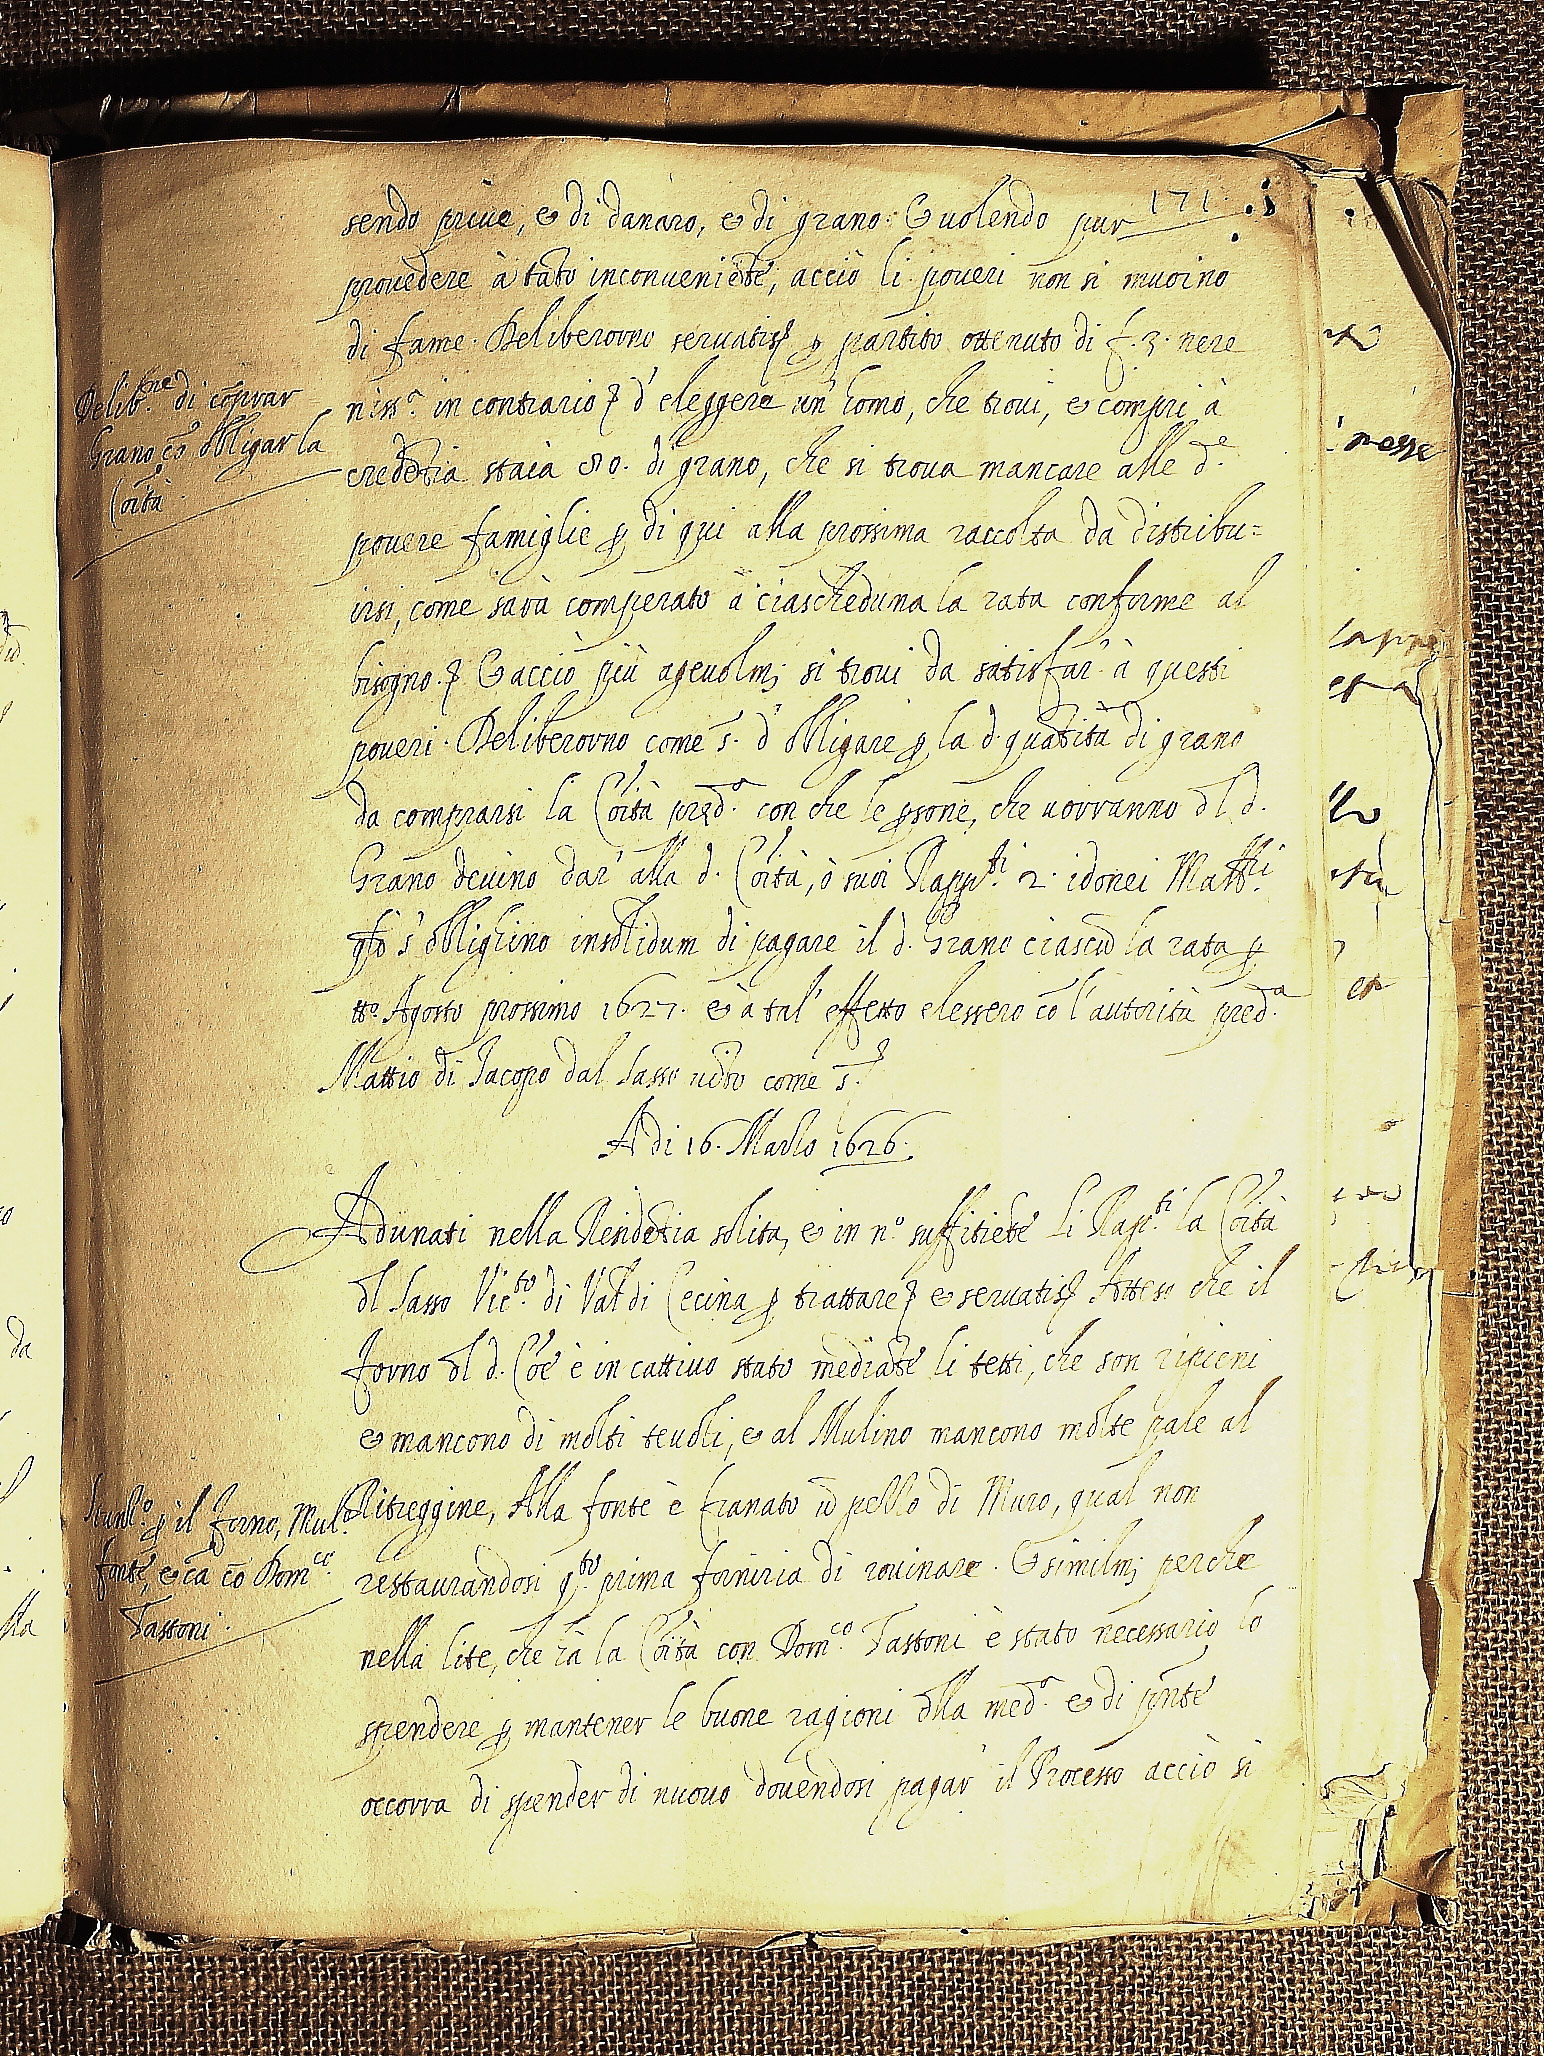 171
sendo prive, & di danaro, & di grano. E volendo pur
provedere à tãto inconveniẽte, acciò li poveri non si muoino
di fame. Deliberorno servatis p partito ottenuto di f. 3. nere
niss.º in contrario d'eleggere un' homo, che trovi, e compri à
credẽtia staia 80. di grano, che si trova mancare alle d.e
povere famiglie p di qui alla prossima raccolta da distribu=
irsi, come sarà comperato à ciascheduna la rata conforme al
bisogno. E acciò più agevolm; si trovi da satisfar' à questi
poveri. Deliberorno come s. d'obligare p la d. quãtità di grano
da comprarsi la Cõità pred.a con che le psone, che vorranno dl d.
Grano devino dar' alla d. Cõità, ò suoi Rapp.ti 2. idonei Mall.ri
s'oblighino insolidum di pagare il d. Grano ciascũ la rata p
tt.o Agosto prossimo 1627. & à tal' effetto elessero cõ l'autorità pred.a
Mattio di Jacopo dal Sasso vĩto come s.
Delib.ne di cõprar
Grano cõ obligar la
Cõità
A di 16. Marzo 1626.
Adunati nella Residẽtia solita, & in n.º suffitiẽte Li Rap.ti la Cõità
dl Sasso Vic.to di Val di Cecina p trattare & servatis Atteso che il
forno dl d. Cõe è in cattivo stato mediãte li tetti, che son ripieni
& mancono di molti tevoli, & al Mulino mancono molte pale al
Ritreggine, Alla fonte è franato ũ pello di Muro, qual non
restaurandosi q.to prima forniria di rovinare. E similm; perche
nella lite, che hà la Cõità con Dom.co Tassoni è stato necessario lo
spendere p mantener le buone ragioni dlla med.a & di pñte
occorra di spender di nuovo dovendosi pagar' il Processo acciò si
p il forno, Mul.o
fonte, & cã cõ Dom.co
Tassoni.